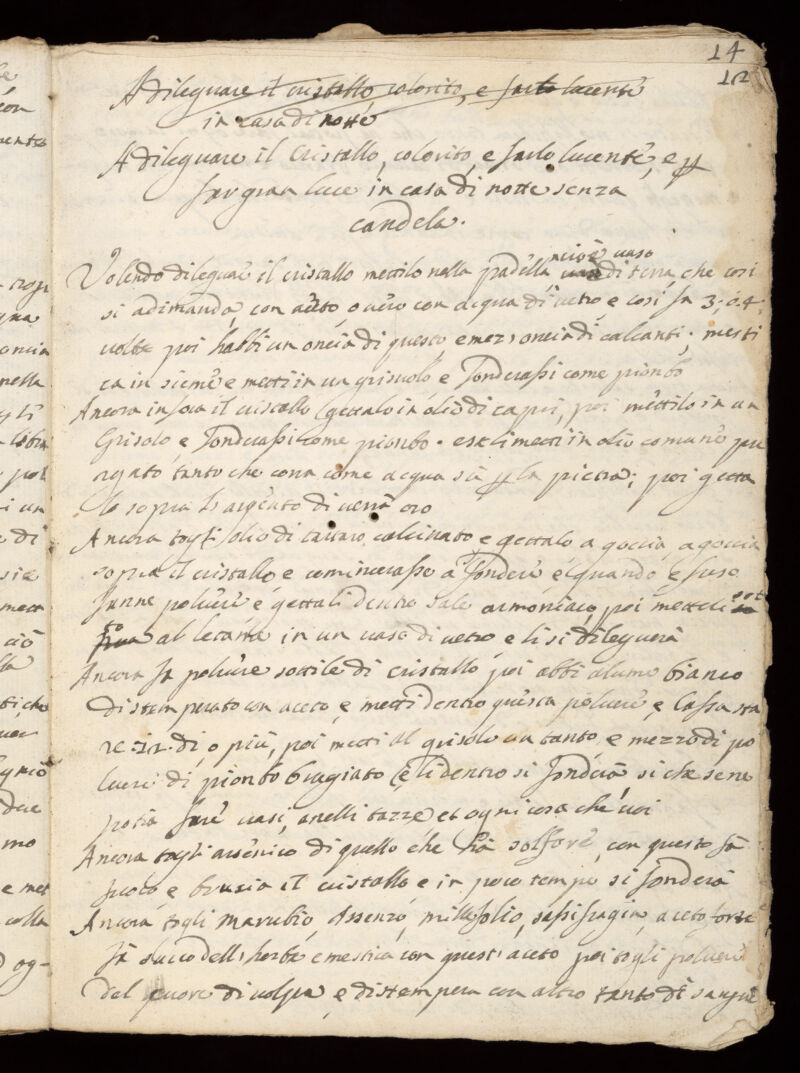 14
12
A dileguare il cristallo colorito, e farlo lucente
in casa di notte
A dileguare il Cristallo, colorito, e farlo lucente, e p
far gran luce in casa di notte senza
candela.
Volendo dileguar il cristallo mettilo nella padella di terra, che cosi
cioè vaso
si adimanda, con aceto, o vero con acqua di vetro, e cosi fa 3, o 4
volte poi habbi un oncia di questo e mezz oncia di calcanti; mesti
ca insieme e metti in un grisuolo e fonderassi come piombo
Ancora infoca il cristallo gettalo in olio di capri, poi mettilo in un
Grisolo e fonderassi come piombo. e se li metti in olio comune pu
rgato, tanto che corra come acqua sù p la pietra; poi getta
lo sopra l'argento diverrà oro
Ancora togli olio di tartaro calcinato e gettalo a goccia, a goccia
sopra il cristallo e cominceasse a fondere e quando e fuso
fanne polvere e gettali dentro Sale armoniaco, poi metteli sot
to al letame in un vaso di vetro e li si dileguerà
Ancora fa polvere sottile di cristallo poi abbi alume bianco
distemperato con aceto, e metti dentro questa polvere, e lassa sta
re 12 di, o più, poi metti al grisolo un tanto, e mezzo di po
lvere di piombo brugiato e li dentro si fonderà si che se ne
potrà fare vasi, anelli tazze et ogni cosa che voi
Ancora togli arsenico di quello che hà solfore, con questo fà
fuoco, e brusia il cristallo e in poco tempo si fonderà
Ancora togli marubio, Assenzo, millefolio, sassifragia, aceto forte
fà succo dell herbe e mestica con questi aceto poi togli polvere
del cuore di volpe, e distempera con altro tanto di sangue